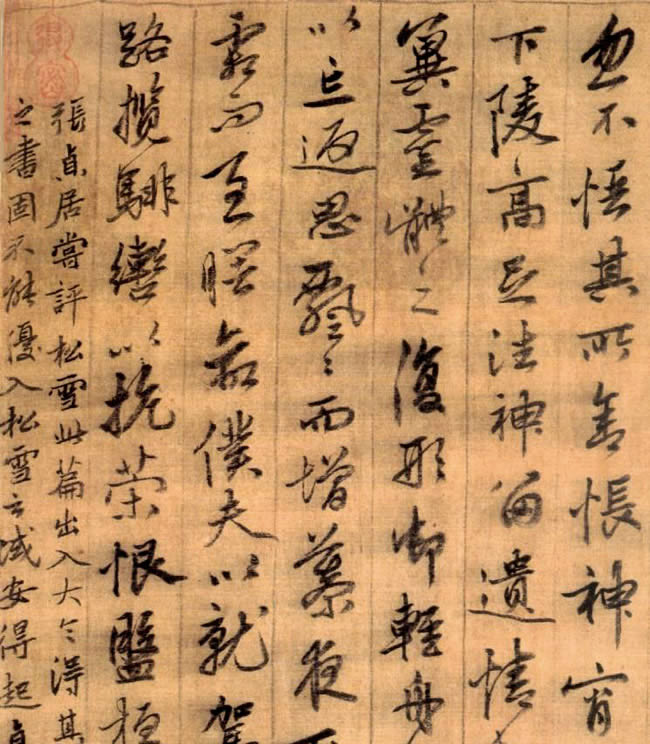 忽不悟其所舍悵神宵
下陵高足往神留遺情
冀靈體之復形御輕舟
以忘返思〻而增慕夜
霜而至曙命僕夫以就駕
路攬騑轡以抗策恨盤桓
張貞居嘗評松雪此篇出入大令得其
之書固不能優入松雪之域安得起貞